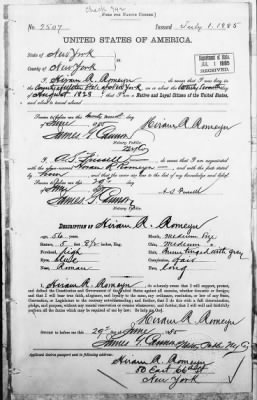 Check 7 nr
[FORM FOR NATIVE CITIZEN.]
No. 2507 Issued July 1. 1885
UNITED STATES OF AMERICA.
State of New York
County of New York
Department of State
RECEIVED
I, Hiram R. Romeyn, do swear that I was born in the
New York, on or about the
day of
August 1828, that I am a Native and Loyal Citizen of the United States,
and about to travel abroad.
Sworn to before me this
day of
June 1885
Hiram R. Romeyn
James G. Cannon
Notary Public
I, do swear that I am acquainted
with the above named Hiram R. Romeyn and with the facts stated
by him and that the same are true to the best of my knowledge and belief.
Sworn to before me this 29th
day of June 1885
James G. Cannon
Notary Public
DESCRIPTION OF Hiram R. Romeyn
Age, 56 years, Mouth, medium size
Stature, 5 feet 8 1/2 inches, Eng. Chin, medium
Forehead, high Hair, brown tinged with gray
Eyes, Complexion, fair
Nose, Roman Face, long
I, Hiram R. Romeyn, do solemnly swear that I will support, protect,
and defend the Constitution and Government of the United States against all enemies, whether domestic or foreign;
and that I will bear true faith, allegiance, and loyalty to the same, any ordinance, resolution, or law of any State,
Convention, or Legislature to the contrary notwithstanding; and further, that I do this with a full determination,
pledge, and purpose, without any mental reservation or evasion whatsoever; and, further, that I will well and faithfully
perform all the duties which may be required of me by law: So help me God.
Hiram R. Romeyn
Sworn to before me this 29th day of June 1885
James G. Cannon Notary Public N.Y. Co
Applicant desires passport sent to following address:
Hiram R. Romeyn
50 East 66th St
New York